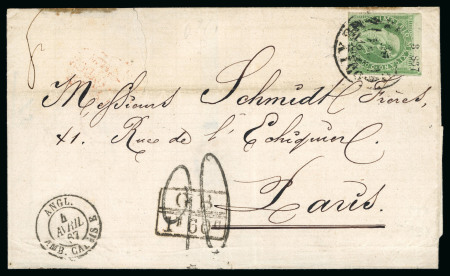 Messieurs Schmidt Frères,
41. Rue de l'Echiquier.
Paris.
G B
1F 60c
ANGL.
4
AVRIL
67
AMB. CALAIS